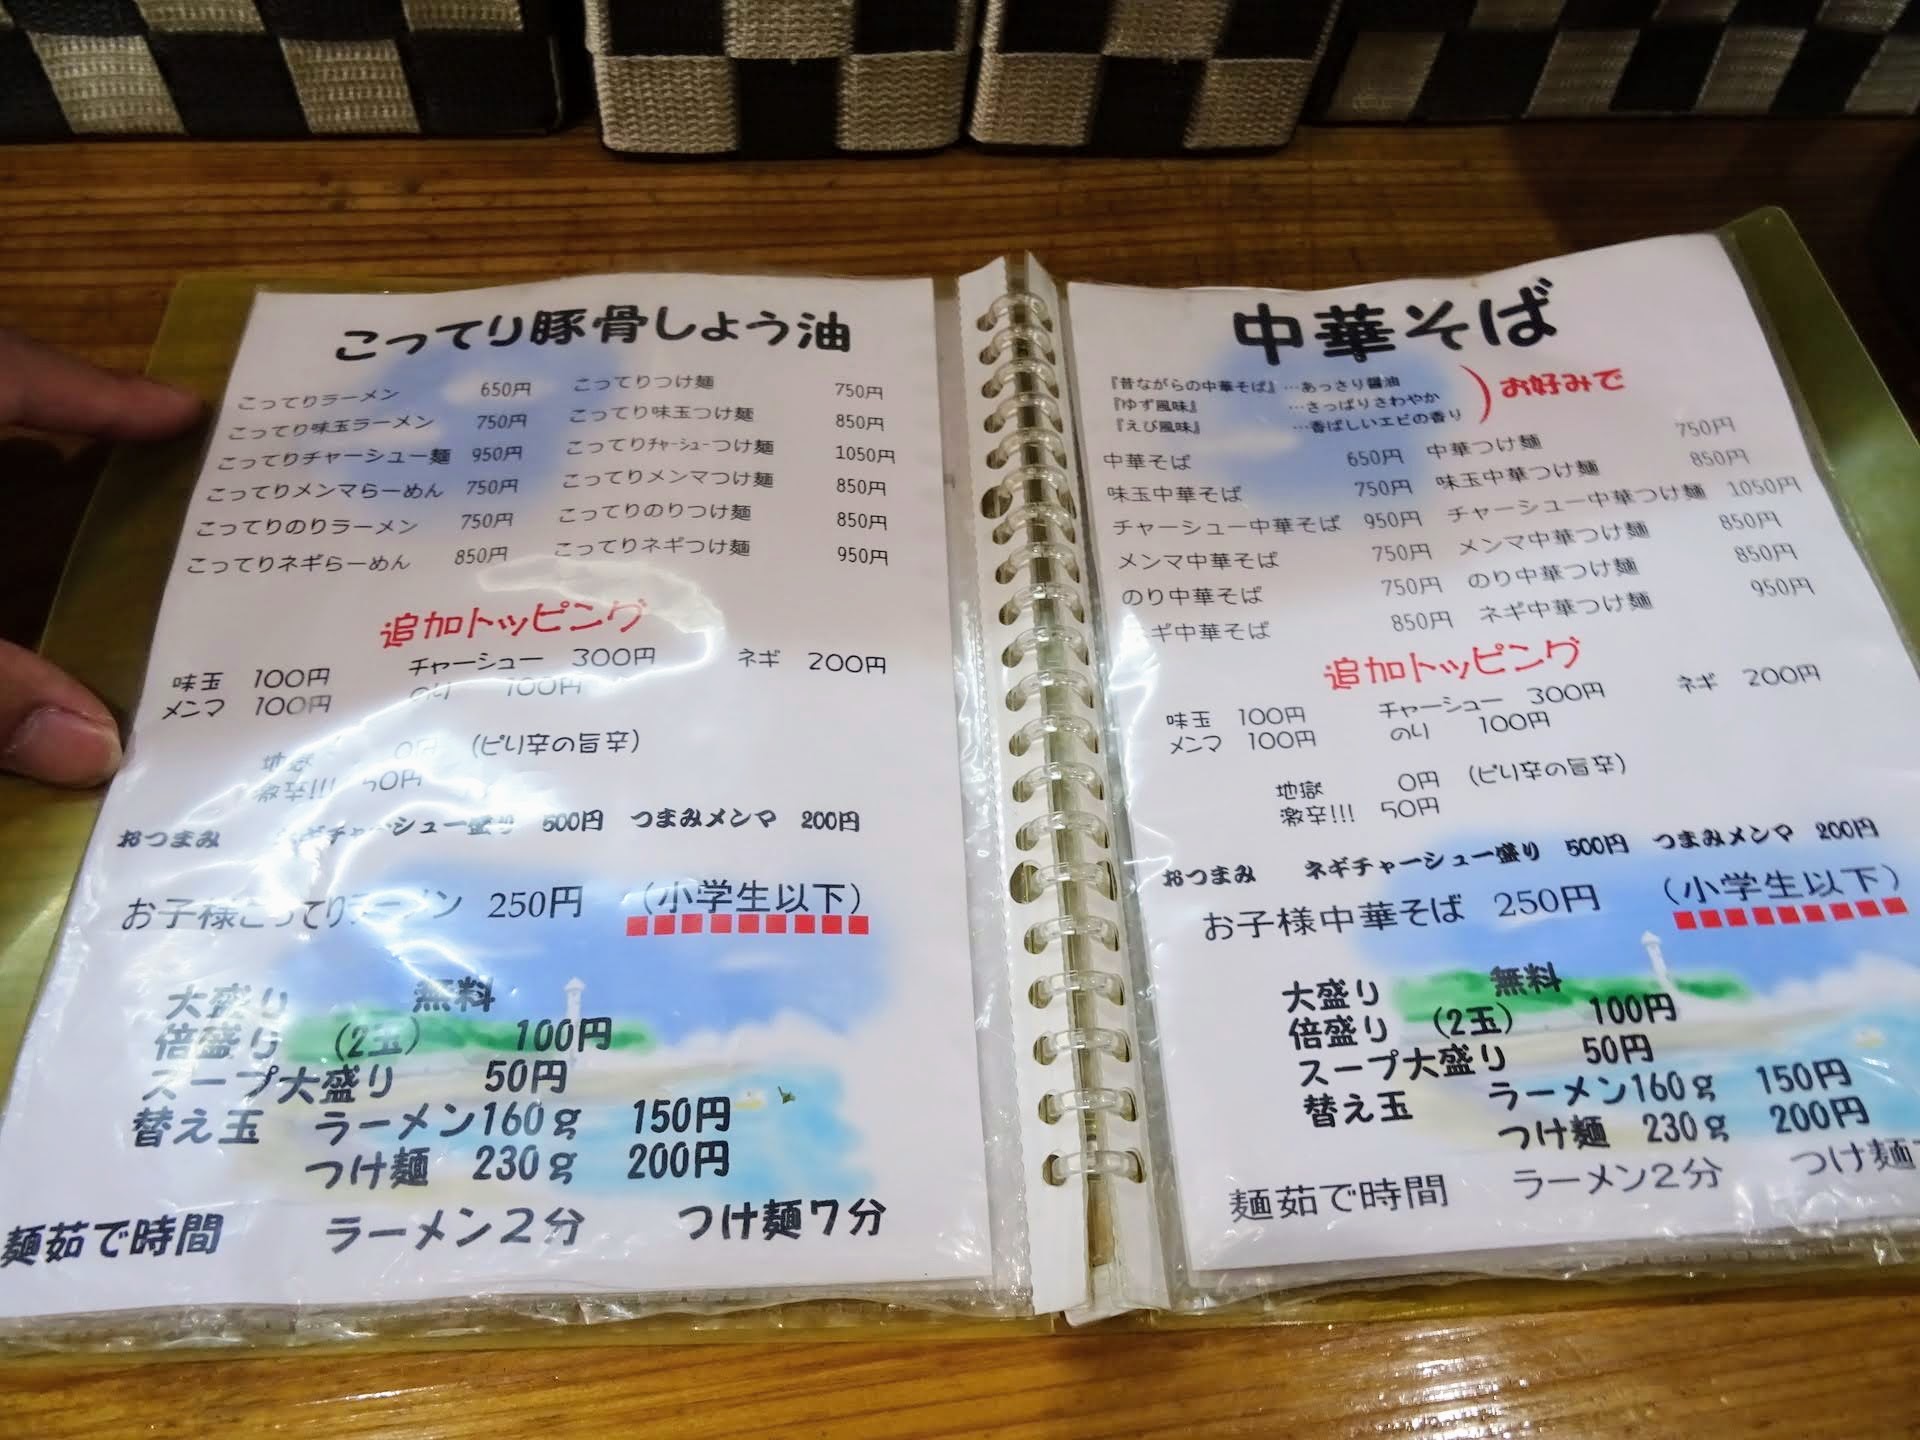 こってり豚骨しょう油
こってりラーメン 650円 こってりつけ麺 750円
こってり味玉ラーメン 750円 こってり味玉つけ麺 850円
こってりチャーシュー麺 950円 こってりチャーシューつけ麺 1050円
こってりメンマらーめん 750円 こってりメンマつけ麺 850円
こってりのりラーメン 750円 こってりのりつけ麺 850円
こってりネギらーめん 850円 こってりネギつけ麺 950円
追加トッピング
味玉 100円 チャーシュー 300円 ネギ 200円
メンマ 100円 のり 100円
地獄 0円 (ピリ辛の旨辛)
激辛!!! 50円
おつまみ ネギチャーシュー盛り 500円 つまみメンマ 200円
お子様こってりラーメン 250円 (小学生以下)
大盛り 無料
倍盛り (2玉) 100円
スープ大盛り 50円
替え玉 ラーメン160g 150円
つけ麺 230g 200円
麺茹で時間 ラーメン2分 つけ麺7分
中華そば
『昔ながらの中華そば』…あっさり醤油
『ゆず風味』 …さっぱりさわやか
『えび風味』 …香ばしいエビの香り
) お好みで
中華そば 650円 中華つけ麺 750円
味玉中華そば 750円 味玉中華つけ麺 850円
チャーシュー中華そば 950円 チャーシュー中華つけ麺 1050円
メンマ中華そば 750円 メンマ中華つけ麺 850円
のり中華そば 750円 のり中華つけ麺 850円
ギ中華そば 850円 ネギ中華つけ麺 950円
追加トッピング
味玉 100円 チャーシュー 300円 ネギ 200円
メンマ 100円 のり 100円
地獄 0円 (ピリ辛の旨辛)
激辛!!! 50円
おつまみ ネギチャーシュー盛り 500円 つまみメンマ 200円
お子様中華そば 250円 (小学生以下)
大盛り 無料
倍盛り (2玉) 100円
スープ大盛り 50円
替え玉 ラーメン160g 150円
つけ麺 230g 200円
麺茹で時間 ラーメン2分 つけ麺